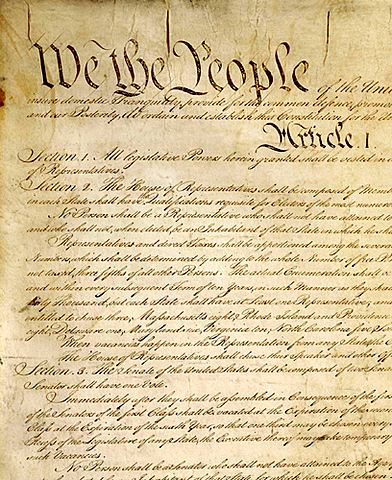 We the People of the Uni
insure domestic Tranquility, provide for the common defence, prom
and our Posterity, do ordain and establish this Constitution for the Un
Article. I.
Section. 1. All legislative Powers herein granted shall be vested in
of Representatives.
Section. 2. The House of Representatives shall be composed of Mem
in each State shall have Qualifications requisite for Electors of the most numerou
No Person shall be a Representative who shall not have attained
and who shall not, when elected, be an Inhabitant of that State in which he sha
Representatives and direct Taxes shall be apportioned among the severa
Numbers, which shall be determined by adding to the whole Number of free Pe
not taxed, three fifths of all other Persons. The actual Enumeration shall
and within every subsequent Term of ten Years, in such Manner as they sha
thirty Thousand, but each State shall have at Least one Representative; an
entitled to chuse three, Massachusetts eight, Rhode Island and Providence
eight, Delaware one, Maryland six, Virginia ten, North Carolina five, S
When vacancies happen in the Representation from any State, the
The House of Representatives shall chuse their Speaker and other of
Section. 3. The Senate of the United States shall be composed of two Sena
Senator shall have one Vote.
Immediately after they shall be assembled in Consequence of the fir
of the Senators of the first Class shall be vacated at the Expiration of the seco
Class at the Expiration of the sixth Year, so that one third may be chosen every
Recess of the Legislature of any State, the Executive thereof may make tempora
such Vacancies.
No Person shall be a Senator who shall not have attained to the Age